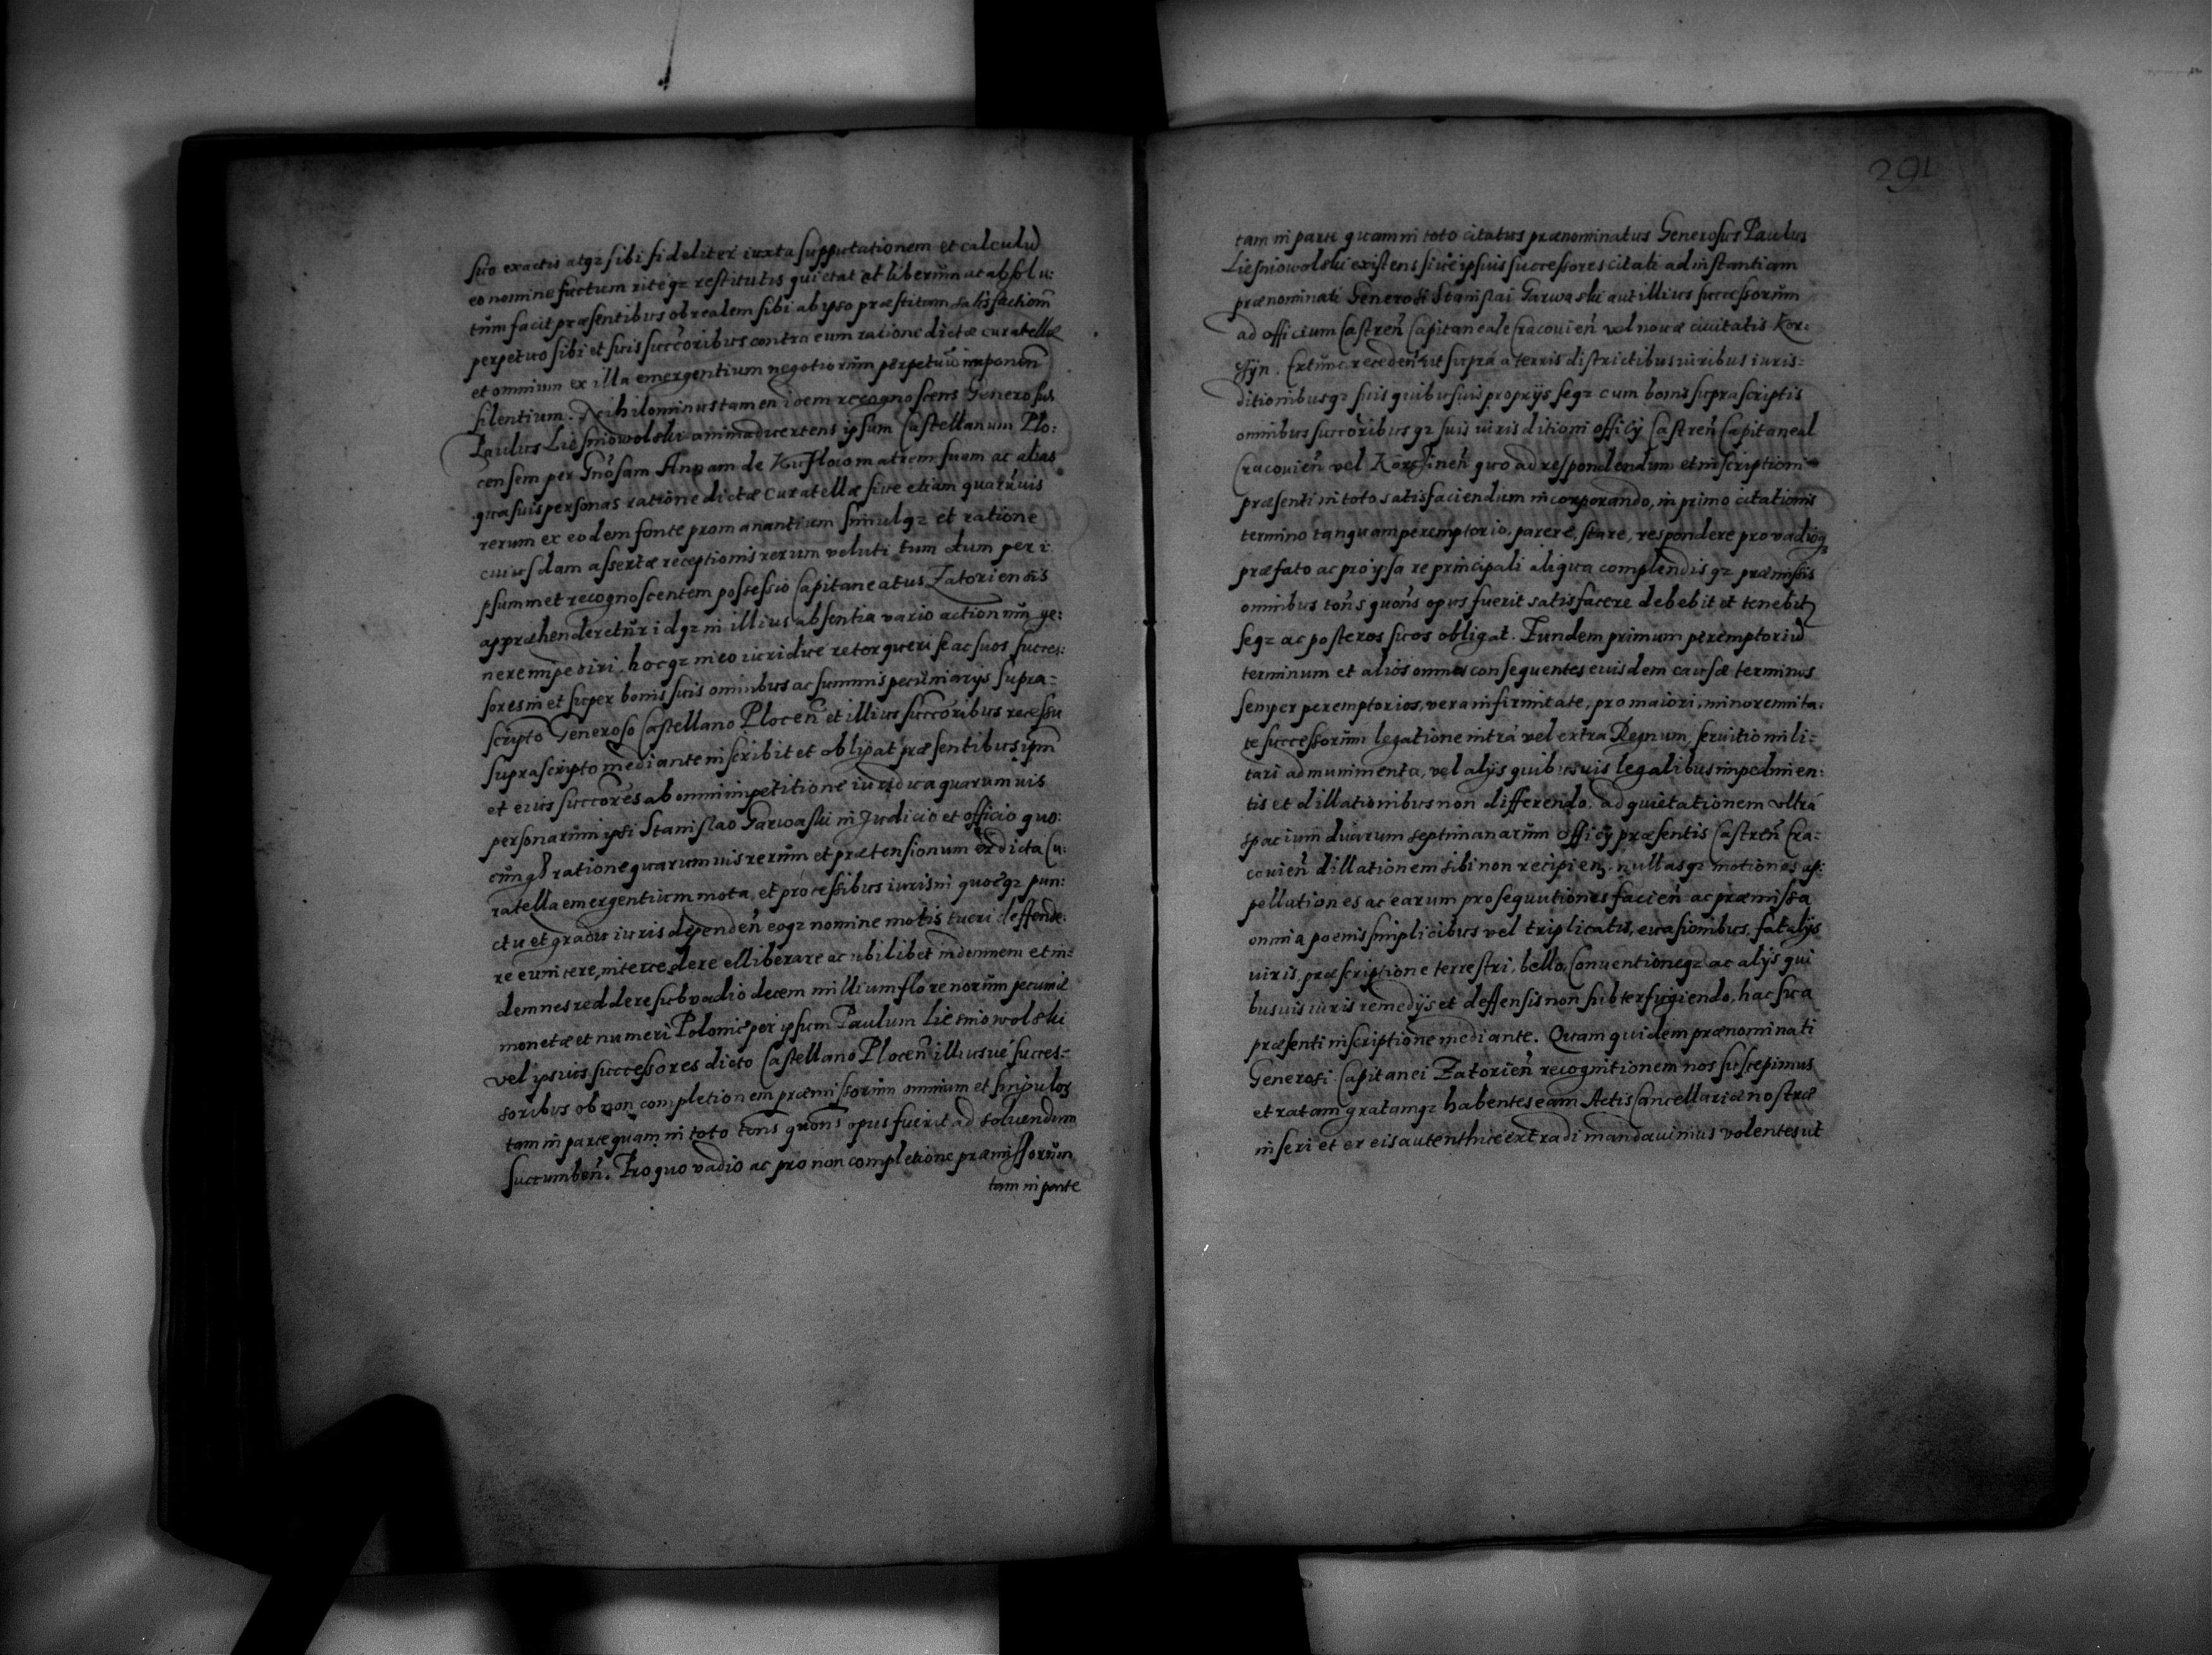 suo exactis atqz sibi fideliter iuxta supputationem et calculũ
eo nomine factum riteqz restitutis quietat et liberum ac absolu:
tum facit præsentibus ob realem sibi ab ipso præstitam satisfactiom̃
perpetuo sibi et suis succ̃oribus contra eum ratione dictæ curatellæ
et omnium ex illa emergentium negotiorum perpetuũ imponen̄
silentium. Nihilominus tamen idem recognoscens Generosus
Paulus Liesniowolski animaduertens ipsum Castellanum Plo:
censem per Gnõsam Annam de matrem suam ac alias
quasuis personas ratione dictæ curatellæ siue etiam quarũuis
rerum ex eodem fonte promanantium simulqz et ratione
cuiusdam assertæ receptionis rerum veluti tum dum per i
psummet recognoscentem possessio Capitaneatus Zatoriensis
appræhenderetur idqz in illius absentia vario actionum ge:
nere impediri, hocqz in eo iuridice retorqueri se ac suos succes:
sores in et super bonis suis omnibus ac summis pecuniarijs supra=
scripto Generoso Castellano Plocen̄ et illius succ̃oribus recessu
suprascripto mediante inscribit et obligat præsentibus ip̃m
et eius succ̃ores ab omni impetitione iuridica quarumuis
personarum ipsi Stanislao Garwaski in Judicio et officio quo:
cunqz ratione quarumuis rerum et prætensionum ex dicta Cu:
ratella emergentium mota, et processibus iuris in quoc̃qz pun:
ctu et gradu iuris dependen̄ eoqz nomine motis tueri deffende:
re euincere, intercedere elliberare ac ubilibet indemnem et in=
demnes reddere sub vadio decem millium florenorum pecuniæ
monetæ et numeri Polonic̃ per ipsum Paulum Liesniowolski
vel ipsius successores dicto Castellano Plocen̄ illiusué succes=
soribus ob non completionem præmissorum omnium et singulorz
tam in parte quam in toto tot̃ns quot̃ns opus fuerit ad soluendum
succumben̄. Pro quo vadio ac pro non completione præmissorum
tam in parte
291
tam in parte quam in toto citatus prænominatus Generosus Paulus
Liesniowolski existens siue ipsius successores citati ad instantiam
prænominati Generosi Stanislai Garwaski aut illius successorum
ad officium Castren̄ Capitaneale Cracouien̄ vel nouæ ciuitatis Kor:
cÿn. Extunc receden̄ ut supra a terris districtibus iuribus iuris=
ditionibusqz suis quibusuis proprijs seqz cum bonis suprascriptis
omnibus succ̃oribusqz suis iurisditioni officij Castren̄ Capitaneal
Cracouien̄ vel Korcsinen̄ quo ad respondendum et inscriptioni
præsenti in toto satisfaciendum incorporando, in primo citationis
termino tanquam peremptorio, parere, stare, respondere pro vadioqz
præfato ac pro ipsa re principali aliqua complendisqz præmissis
omnibus tot̃ns quot̃ns opus fuerit satisfacere debebit et tenebitz
seqz ac posteros suos obligat. Eundem primum peremptoriũ
terminum et alios omnes consequentes eiusdem causæ terminos
semper peremptorios, vera infirmitate, pro maiori, minorennita:
te successorum legatione intrá vel extra Regnum, seruitio mili=
tari ad munimenta, vel alijs quibusuis legalibus impedimen:
tis et dillationibus non differendo, ad quietationem vltrá
spacium duarum septimanarum officij præsentis Castren̄ Cra=
couien̄ dillationem sibi non recipienz, nullasqz motiones ap:
pellationes ac earum prosequutiones facien̄ ac præmissa
omnia poenis simplicibus vel triplicatis, euasionibus, fatalijs
iuris, præscriptione terrestri, bello, Conuentioneqz ac alijs qui
busuis iuris remedijs et deffensis non subterfugiendo, hac sua
præsenti inscriptione mediante. Quam quidem prænominati
Generosi Capitanei Zatorien̄ recognitionem nos suscepimus
et ratam gratamqz habentes eam Actis Cancellariæ nostræ
inseri et ex eis autenthice extradi mandauimus volentes ut